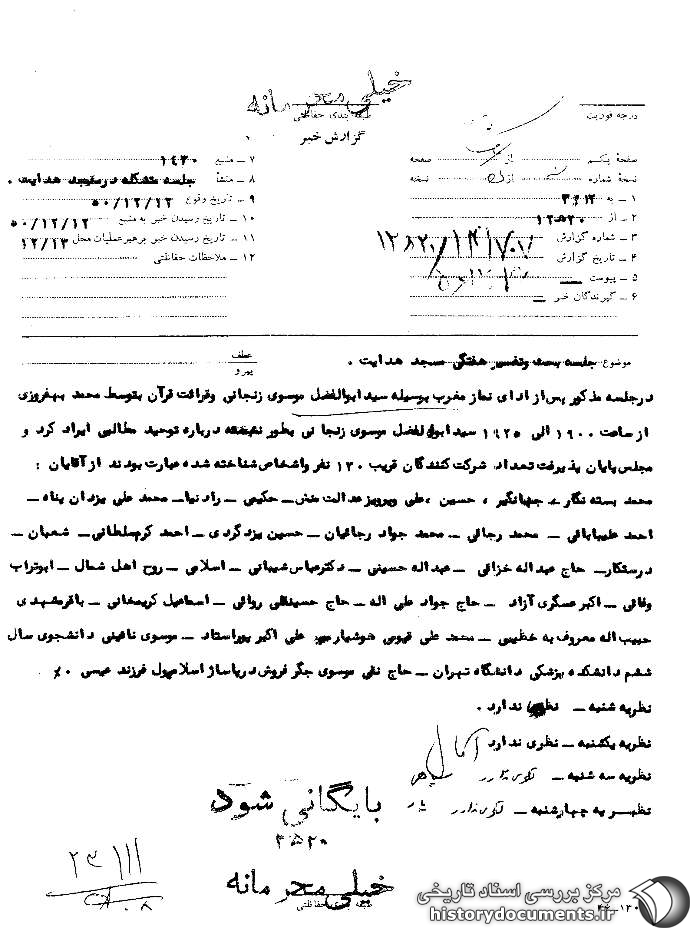 خیلی محرمانه
درجه فوریت
طبقه بندی حفاظتی
گزارش خبر
صفحهٔ یکم از صفحه
نسخهٔ شماره از نسخه
۱ – به ۳۱۲
۲ – از ۱۲ﻫ۲۰
۳ – شماره گزارش
۴ – تاریخ گزارش
۵ – پیوست –
۶ – گیرندگان خبر –
۷ – منبع ۱۴۳۰
۸ – منشأ جلسه متشکله در مسجد هدایت .
۹ – تاریخ وقوع ۵۰/۱۲/۱۲
۱۰ – تاریخ رسیدن خبر به منبع ۵۰/۱۲/۱۲
۱۱ – تاریخ رسیدن خبر برهبر عملیات محل ۱۲/۱۳
۱۲ – ملاحظات حفاظتی
موضوع جلسه بحث وتفسیر هفتگی مسجد هدایت .
عطف
پیرو
درجلسه مذکور پس از ادای نماز مغرب بوسیله سید ابوالفضل موسوی زنجانی وقرائت قرآن بتوسط محمد بهفروزی
از ساعت ۱۹۰۰ الی ۱۹۲۵ سید ابوالفضل موسوی زنجانی بطور نشسته درباره توحید مطالبی ایراد کرد و
مجلس پایان پذیرفت تعداد شرکت کنندگان قریب ۱۳۰ نفر واشخاص شناخته شده عبارت بودند از آقایان :
محمد بسته نگار – جهانگیر ، حسین ، علی وپرویز عدالت منش – حکیمی – رادنیا – محمد علی یزدان پناه –
احمد علیبابائی – محمد رجائی – محمد جواد رجائیان – حسین یزدگردی – احمد کرم سلطانی – شعبان –
درستکار – حاج عبداله خزائی – عبداله حسینی – دکترعباس شیبانی – اسلامی – روح اهل شمال – ابوتراب
وفائی – اکبر عسگری آزاد – حاج جواد علی اله – حاج حسینقلی روائی – اسماعیل کریمخانی – باقر مشهدی
حبیب اله معروف به خطیبی – محمد علی قیومی هوشیار – علی اکبر پوراستاد – موسوی نائینی دانشجوی سال
ششم دانشکده پزشکی دانشگاه تهران – حاج نقی موسوی جگر فروش درپاساژ اسلامبول فرزند عیسی
نظریه شنبه – نظری ندارد .
نظریه یکشنبه – نظری ندارد
نظریه سه شنبه –
نظریه چهارشنبه –
بایگانی شود
۳۵۲۰
۲۳ ااا
خیلی محرمانه
طبقه بندی حفاظتی
مرکز بررسی اسناد تاریخی
historydocuments.ir